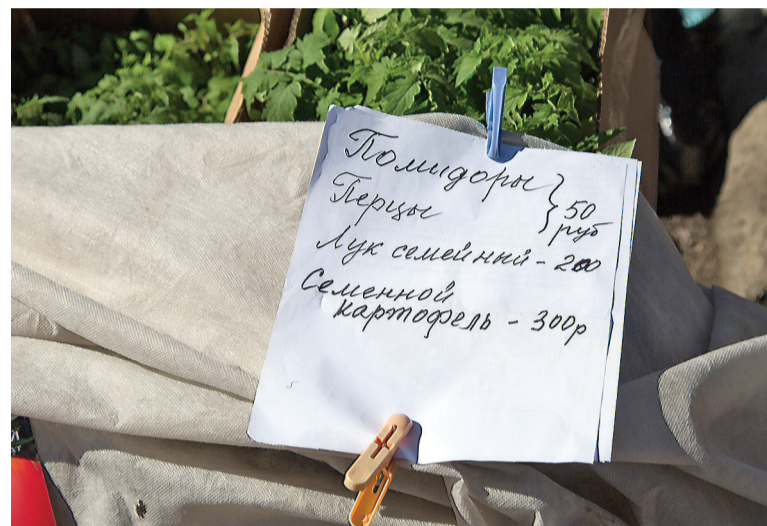 Помидоры } 50
Перцы } руб
Лук семейный - 200
Семенной
картофель - 300р